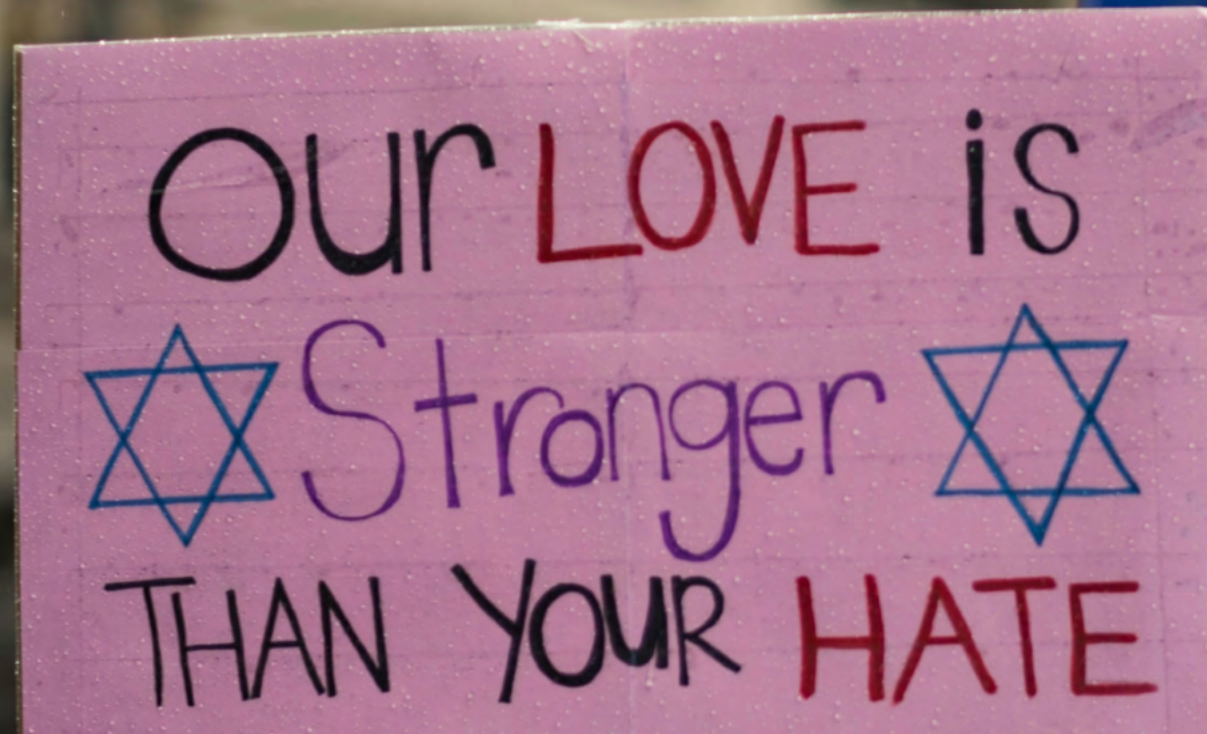 our LOVE is
Stronger
THAN YOUR HATE